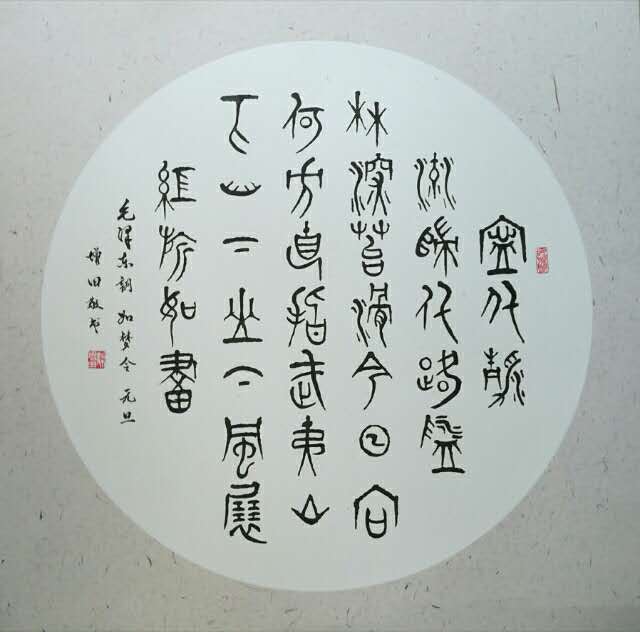 寧化清
流歸化路隘
林深苔滑今日向
何方直指武夷山
下山下山下風展
紅旂如畫
毛澤东詞 如梦令 元旦
增田敬书